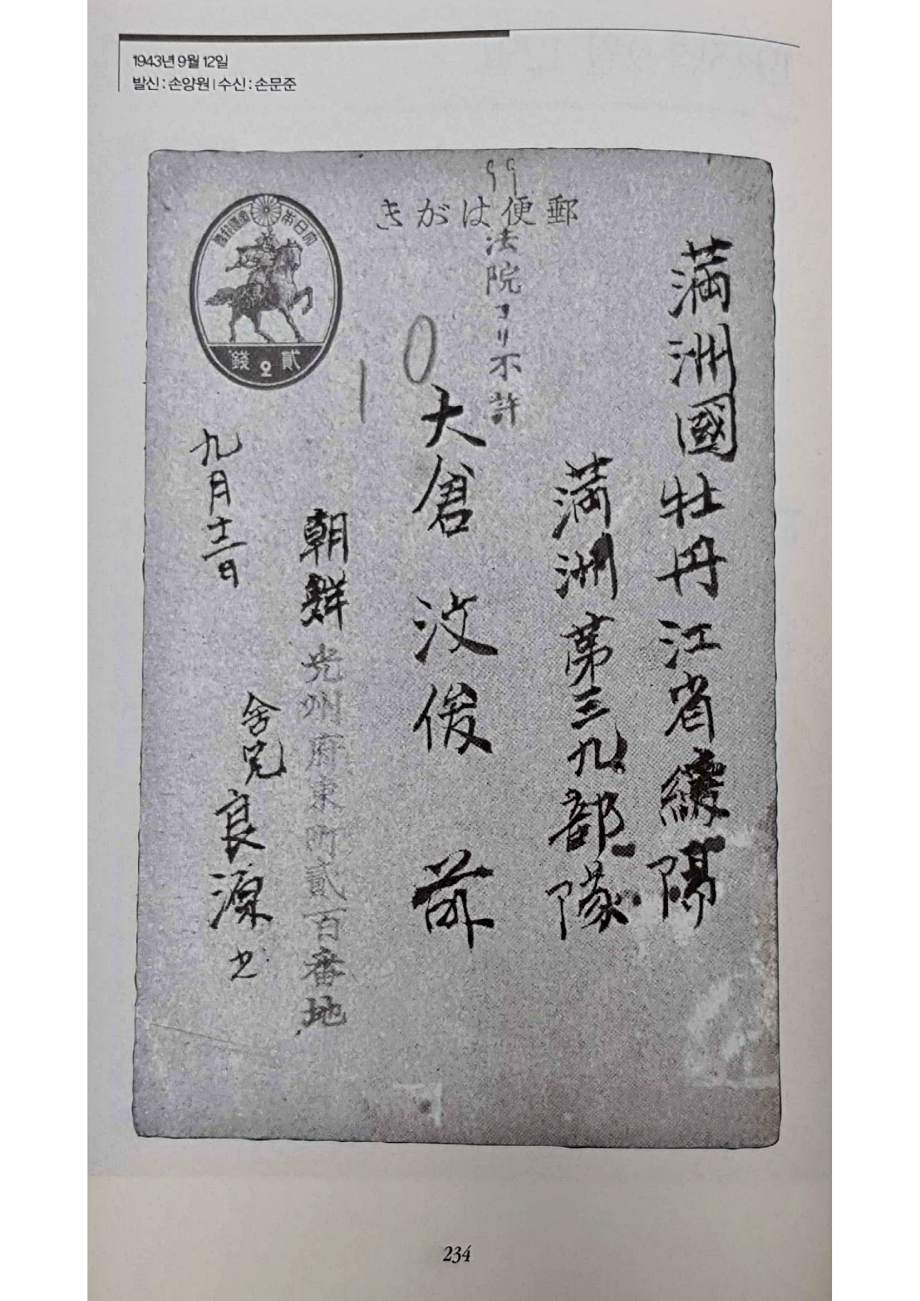 1943년 9월 12일
발신 : 손양원 | 수신 : 손문준
99
郵便はがき
大日本帝國郵便
貳 2 錢
法院ヨリ不許
10
滿洲國牡丹江省綏陽
滿洲第三九部隊
大倉汶俊 前
朝鮮光州府東町貳百番地
舍兄良源
九月十二日
234